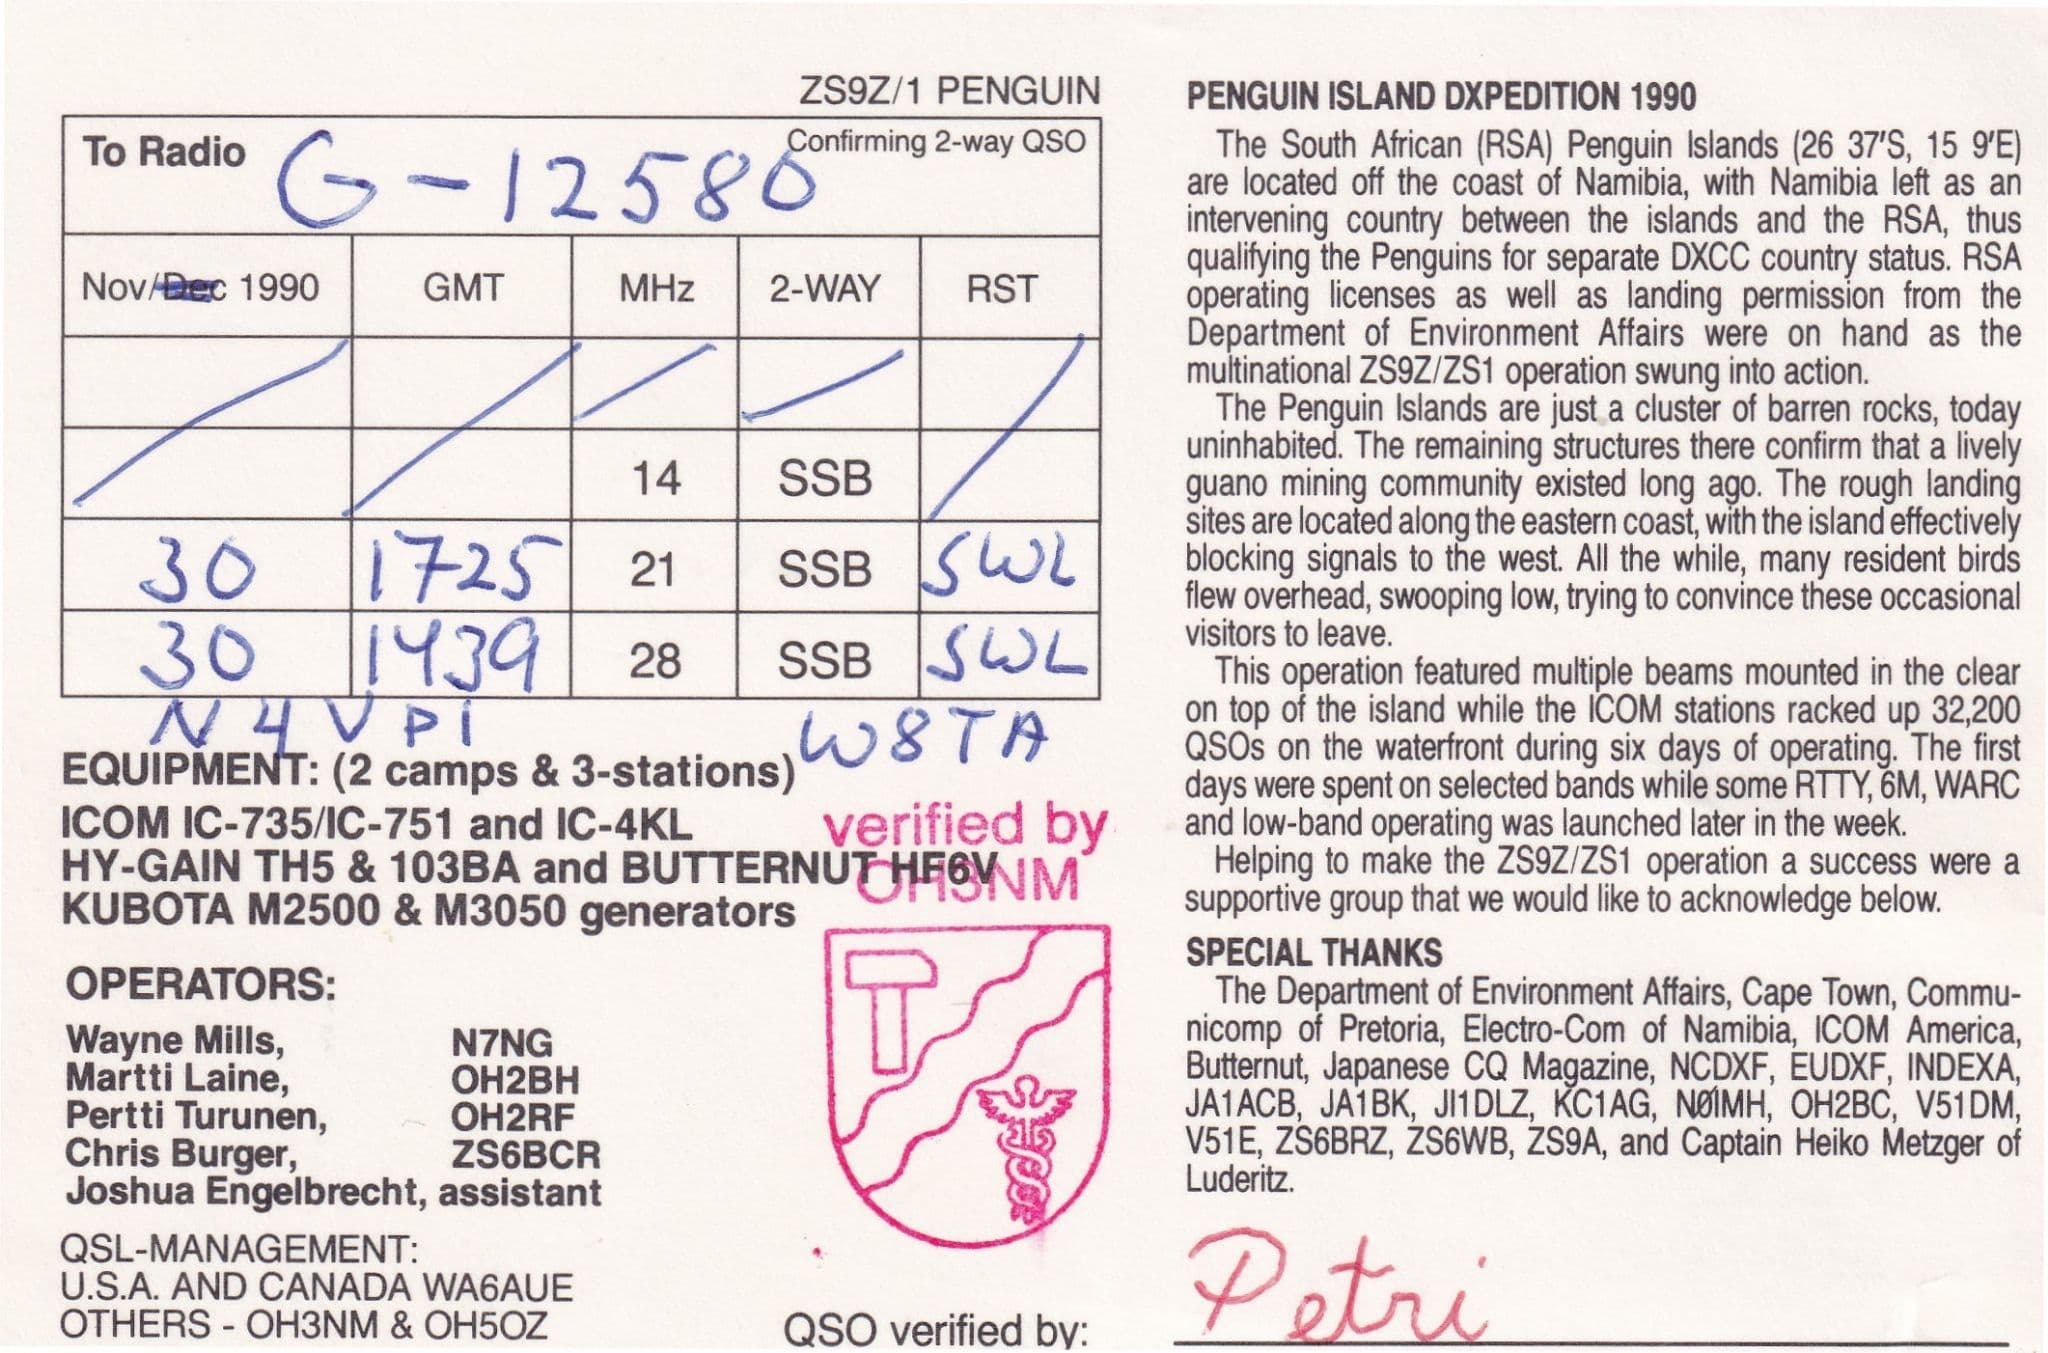 ZS9Z/1 PENGUIN
To Radio G-12580 Confirming 2-way QSO
Nov/Dec 1990 GMT MHz 2-WAY RST
14 SSB
30 1725 21 SSB SWL
30 1439 28 SSB SWL
N4VPI W8TA
EQUIPMENT: (2 camps & 3-stations)
ICOM IC-735/IC-751 and IC-4KL
HY-GAIN TH5 & 103BA and BUTTERNUT HF6V
KUBOTA M2500 & M3050 generators
verified by
OH3NM
OPERATORS:
Wayne Mills, N7NG
Martti Laine, OH2BH
Pertti Turunen, OH2RF
Chris Burger, ZS6BCR
Joshua Engelbrecht, assistant
QSL-MANAGEMENT:
U.S.A. AND CANADA WA6AUE
OTHERS - OH3NM & OH5OZ
PENGUIN ISLAND DXPEDITION 1990
The South African (RSA) Penguin Islands (26 37'S, 15 9'E)
are located off the coast of Namibia, with Namibia left as an
intervening country between the islands and the RSA, thus
qualifying the Penguins for separate DXCC country status. RSA
operating licenses as well as landing permission from the
Department of Environment Affairs were on hand as the
multinational ZS9Z/ZS1 operation swung into action.
The Penguin Islands are just a cluster of barren rocks, today
uninhabited. The remaining structures there confirm that a lively
guano mining community existed long ago. The rough landing
sites are located along the eastern coast, with the island effectively
blocking signals to the west. All the while, many resident birds
flew overhead, swooping low, trying to convince these occasional
visitors to leave.
This operation featured multiple beams mounted in the clear
on top of the island while the ICOM stations racked up 32,200
QSOs on the waterfront during six days of operating. The first
days were spent on selected bands while some RTTY, 6M, WARC
and low-band operating was launched later in the week.
Helping to make the ZS9Z/ZS1 operation a success were a
supportive group that we would like to acknowledge below.
SPECIAL THANKS
The Department of Environment Affairs, Cape Town, Commu-
nicomp of Pretoria, Electro-Com of Namibia, ICOM America,
Butternut, Japanese CQ Magazine, NCDXF, EUDXF, INDEXA,
JA1ACB, JA1BK, JI1DLZ, KC1AG, NØIMH, OH2BC, V51DM,
V51E, ZS6BRZ, ZS6WB, ZS9A, and Captain Heiko Metzger of
Luderitz.
QSO verified by: Petri